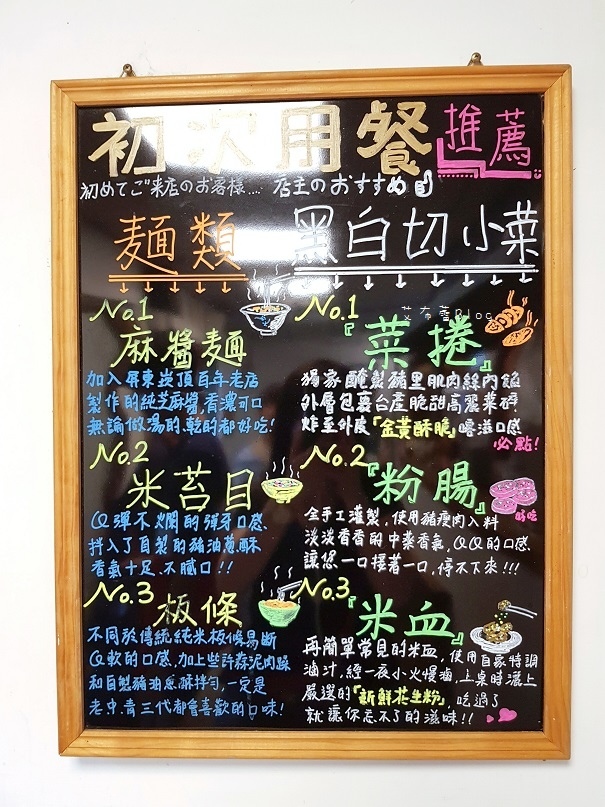 初次用餐推薦
初めてご来店のお客様.... 店主のおすすめ
麵類
No.1
麻醬麵
加入屏東崁頂百年老店
製作的純芝麻醬,香濃可口
無論做湯的、乾的都好吃!
No.2
米苔目
QQ彈不爛的彈牙口感
拌入了自製的豬油蔥酥
香氣十足、不膩口!!
No.3
粄條
不同於傳統純米粄條易斷
Q軟的口感,加上些許蒜泥肉燥
和自製豬油蔥酥拌勻,一定是
老中青三代都會喜歡的口味!
黑白切小菜
艾布蘿Blog
No.1
『菜捲』
獨家醃製豬里肌肉絲內餡
外層包裹台產脆甜高麗菜
炸至外皮「金黃酥脆」喀滋口感
必點!
No.2
『粉腸』
好吃
全手工灌製,使用豬瘦肉入料
淡淡香香的中藥香氣,QQ的口感
讓您一口接著一口,停不下來!!!
No.3
『米血』
再簡單常見的米血,使用自家特調
滷汁,經一夜小火慢滷,上桌時灑上
嚴選的「新鮮花生粉」吃過了
就讓你忘不了的滋味!!